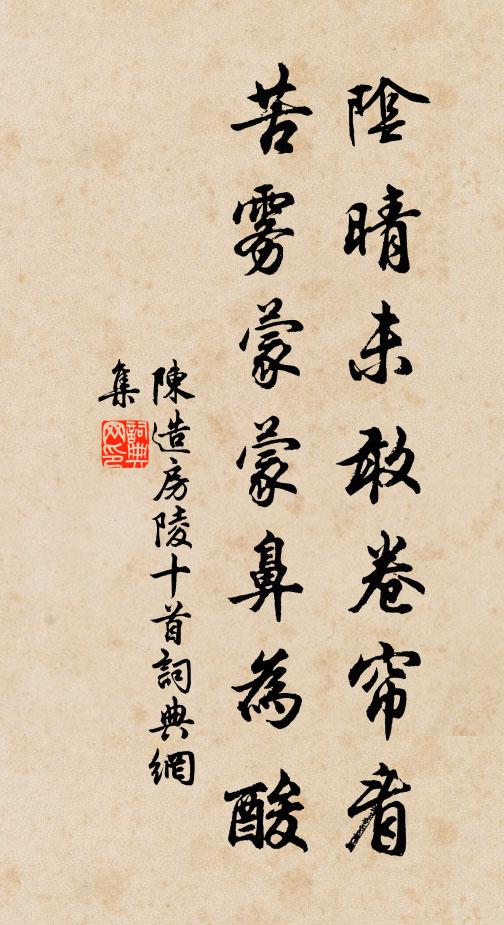 陰晴未敢卷帘看
苦雾蒙蒙鼻為酸
陳造房陵十首詞典網
集
詞典
网印